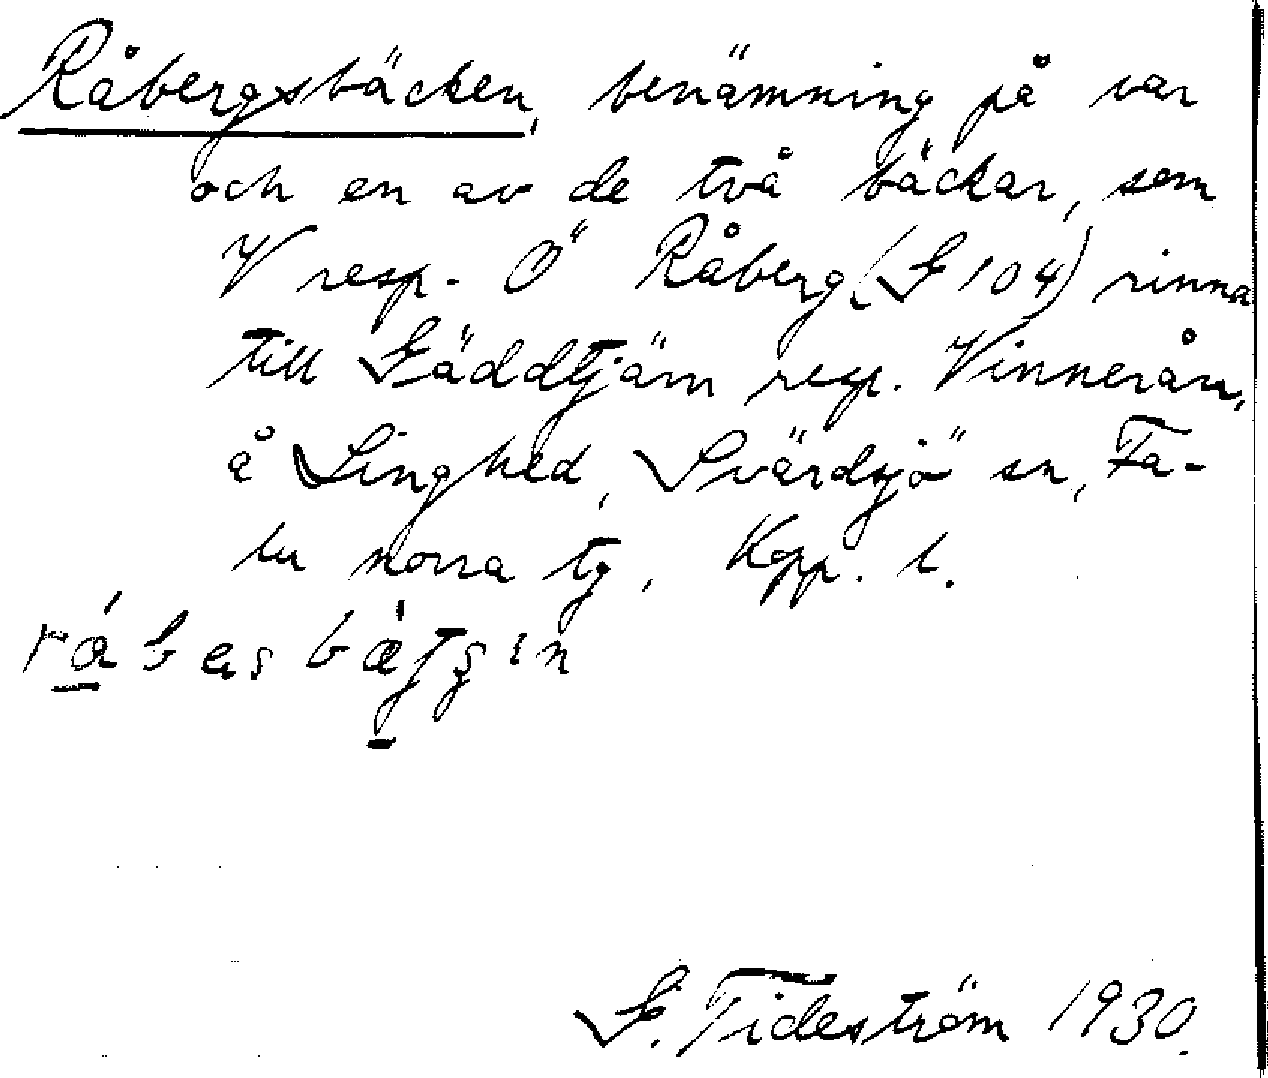 Råbergsbäcken, benämning på var
och en av de två bäckar, som
V resp. Ö Råberg (S 104) rinna
till Säddtjärn resp. Vinnerån,
å Linghed, Svärdsjö sn, Fa-
lu norra tg, Kopp. l.
S. Tideström 1930.